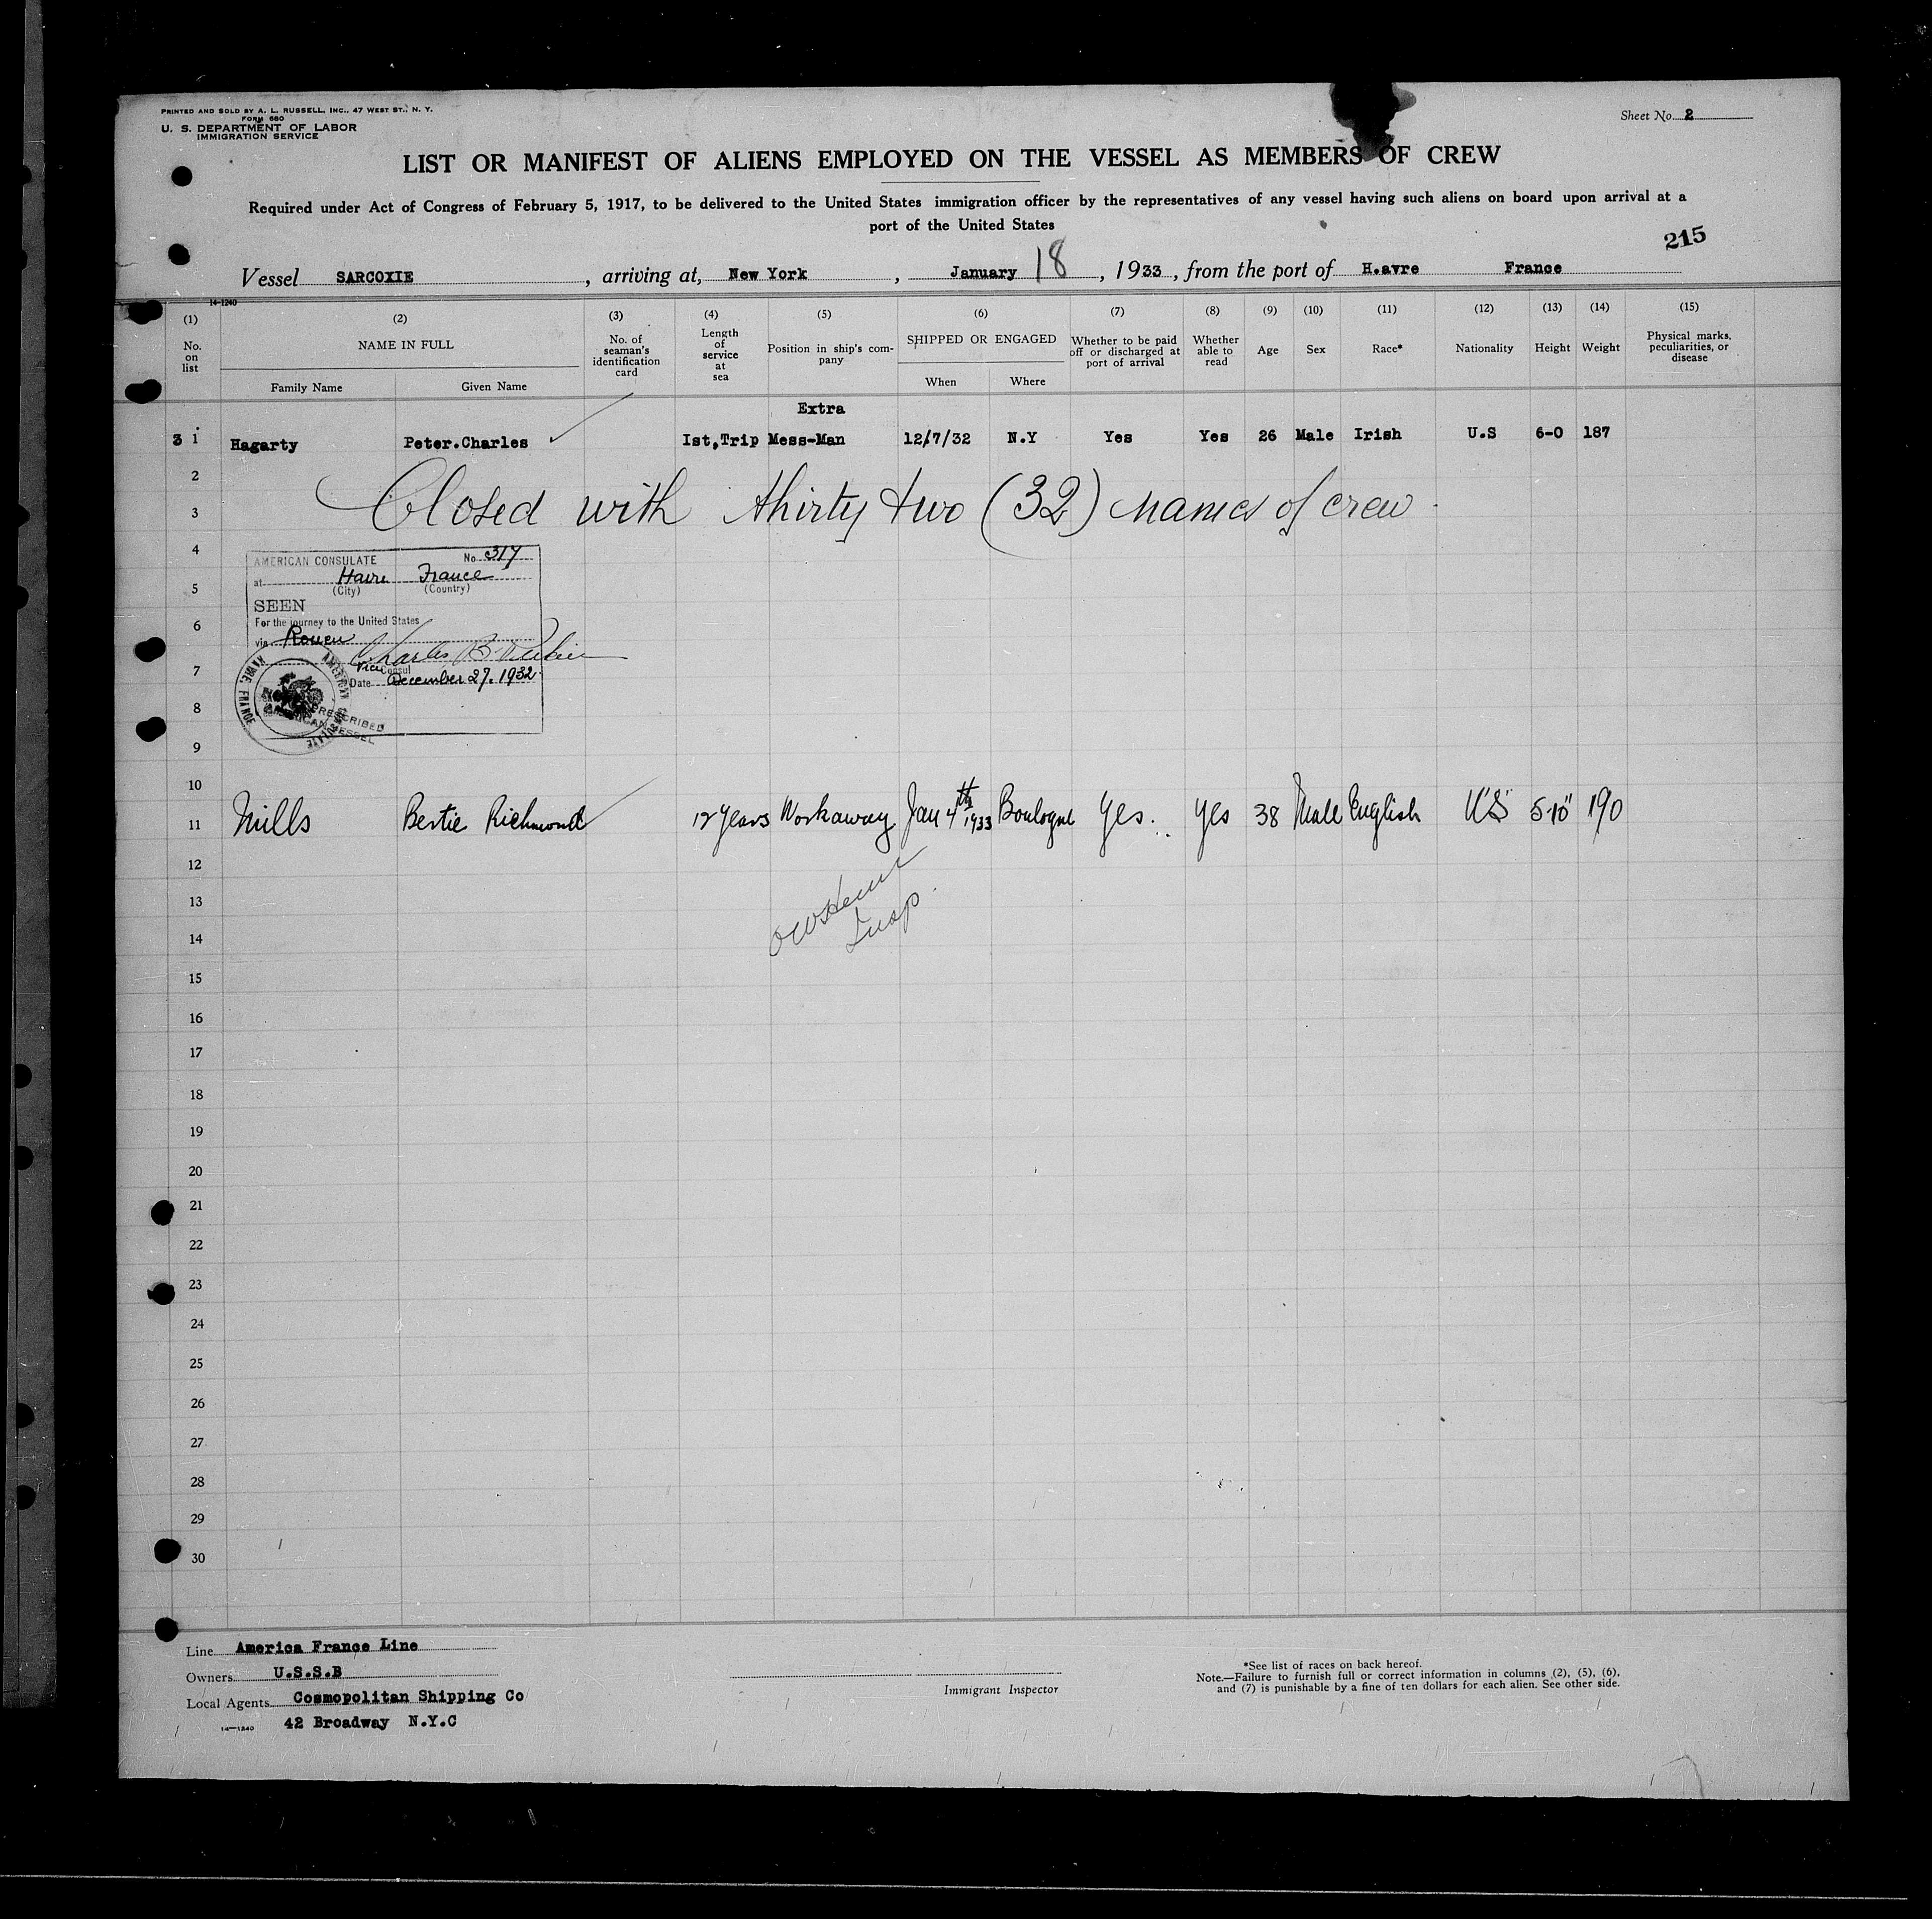 PRINTED AND SOLD BY A. L. RUSSELL, INC., 47 WEST ST., N. Y.
FORM 680
U. S. DEPARTMENT OF LABOR
IMMIGRATION SERVICE
Sheet No. 2
LIST OR MANIFEST OF ALIENS EMPLOYED ON THE VESSEL AS MEMBERS OF CREW
Required under Act of Congress of February 5, 1917, to be delivered to the United States immigration officer by the representatives of any vessel having such aliens on board upon arrival at a
port of the United States
215
Vessel SARCOXIE, arriving at, New York, January 18, 1933, from the port of H.avre France
14-1240
(1) (2) (3) (4) (5) (6) (7) (8) (9) (10) (11) (12) (13) (14) (15)
No. on list
NAME IN FULL
Family Name Given Name
No. of seaman's identification card
Length of service at sea
Position in ship's company
SHIPPED OR ENGAGED
When Where
Whether to be paid off or discharged at port of arrival
Whether able to read
Age
Sex
Race*
Nationality
Height
Weight
Physical marks, peculiarities, or disease
Extra
3 1 Hagarty Peter.Charles Ist,Trip Mess-Man 12/7/32 N.Y Yes Yes 26 Male Irish U.S 6-0 187
2
3 Closed with thirty two (32) names of crew
4
AMERICAN CONSULATE No. 317
at Havre France
(City) (Country)
5
SEEN
6
For the journey to the United States
via Rouen
Charles B.
Vice Consul
7
Date December 27. 1932
HAVRE, FRANCE
AMERICAN CONSULATE
8
AMERICAN VESSEL
9
10
11 Mills Bertie Richmond 12 years Workaway Jan 4th 1933 Boulogne Yes. Yes 38 Male English US 5-10" 190
12
13
Insp.
14
15
16
17
18
19
20
21
22
23
24
25
26
27
28
29
30
Line America France Line
Owners U.S.S.B
Local Agents Cosmopolitan Shipping Co
14-1240 42 Broadway N.Y.C
Immigrant Inspector
*See list of races on back hereof.
Note.—Failure to furnish full or correct information in columns (2), (5), (6),
and (7) is punishable by a fine of ten dollars for each alien. See other side.